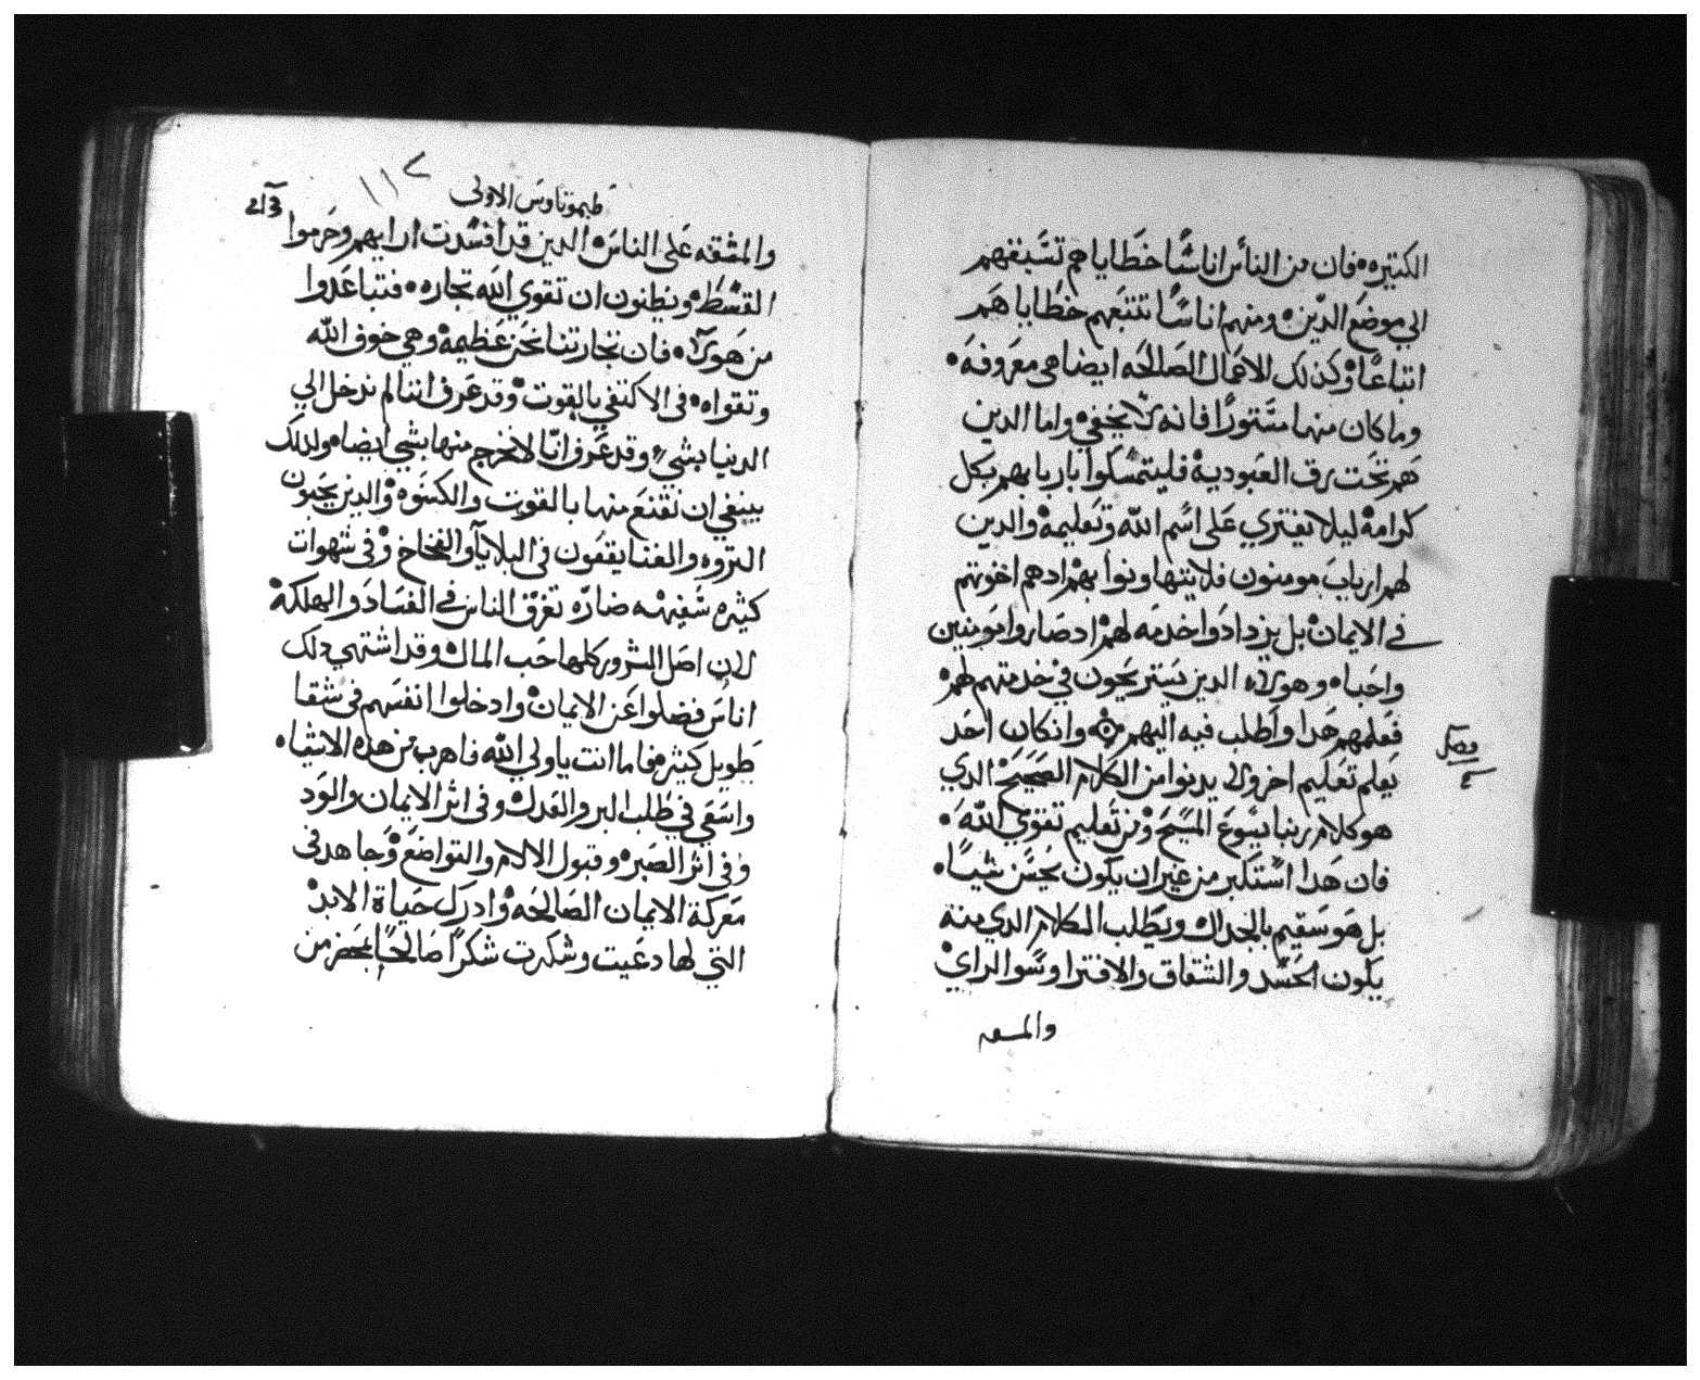 الكتيره فان من الناس اناسًا خطاياهم تسبقهم
الي موضع الدين ومنهم اناسًا تتبعهم خطاياهم
اتباعًا وكذلك الاعمال الصالحه ايضا هي معروفه
وما كان منها مستورًا فانه لا يخفي واما الدين
هم تحت رق العبوديه فليتمسكوا باربابهم بكل
كرامه ليلا يفتري علي اسم الله وتعليمه والدين
لهم ارباب مومنون فلا يتهاونوا بهم ادهم اخوتهم
في الايمان بل يزدادوا خدمه لهم اد صاروا مومنين
واحباه وهولاء الدين يستريحون في خدمتهم لهم
فعلمهم هدا واطلب فيه اليهم وان كان احد
فصل
٤
يعلم تعليم اخر ولا يدنوا من الكلام الصحيح الدي
هو كلام ربنا يسوع المسيح ومن تعليم تقوي الله
فان هدا استكبر من غير ان يكون يحسن شياً
بل هو سقيم بالجدال ويطلب الكلام الدي منه
يكون الحسد والشقاق والافترا وسوا الراي
والمسفه
213
١١٢
طيموتاوس الاولي
والمشقه علي الناس الدين قد افسدت ارايهم وحرموا
القسط ويظنون ان تقوي الله تجاره فتباعدوا
من هولاء فان تجارتنا نحن عظيمه وهي خوف الله
وتقواه في الاكتفي بالقوت وقد عرف اننا لم ندخل الي
الدنيا بشي وقد عرف انّا لا نخرج منها بشي ايضا ولدلك
ينبغي ان نقنع منها بالقوت والكسوه والدين يحبون
التروه والغنا يقفون في البلايا والفخاخ وفي شهوات
كثيره سفيهه ضاره تغرق الناس في الفساد والهلكه
لان اصل الشرور كلها حب المال وقد اشتهي دلك
اناس فضلوا عن الايمان وادخلوا انفسهم في شقا
طويل كثير فاما انت يا ولي الله فاهرب من هده الاشياء
واسعي في طلب البر والعدل وفي اثر الايمان والود
وفي اثر الصبر وقبول الالام والتواضع وجاهد في
معركة الايمان الصالحه وادرك حياة الابد
التي لها دعيت وشكرت شكرًا صالحًا بمحضر من